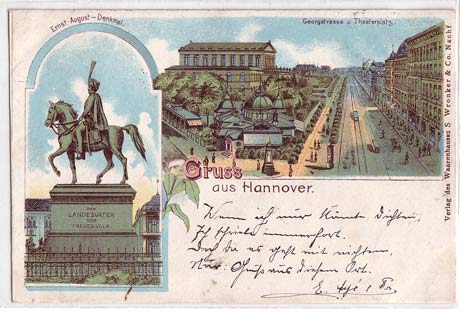 Ernst-August-Denkmal.
Georgstrasse u Theaterplatz.
Verlag des Waarenhauses S. Wronker & Co. Nachf
DEM
LANDESVATER
SEIN
TREUES VOLK
Gruss
aus Hannover.
Wenn ich nur könnte dichten,
Ich schriebe immerfort.
Doch da es geht mit nichten,
Nur: Gruß aus diesem Ort.